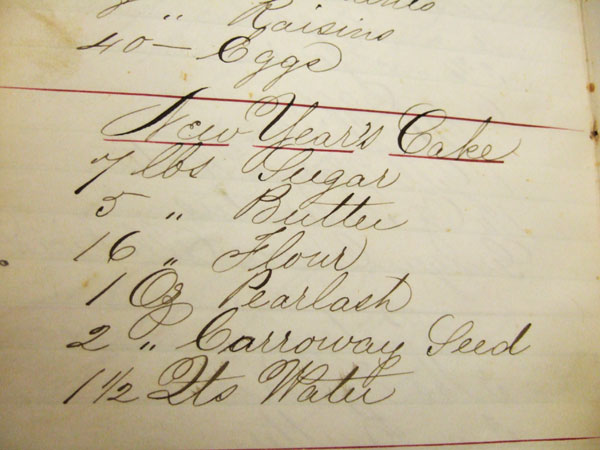 „ Raisins
40— Eggs
New Year's Cake
7 lbs Sugar
5 „ Butter
16 „ Flour
1 Oz Pearlash
2 „ Carroway Seed
1 1/2 Qts Water